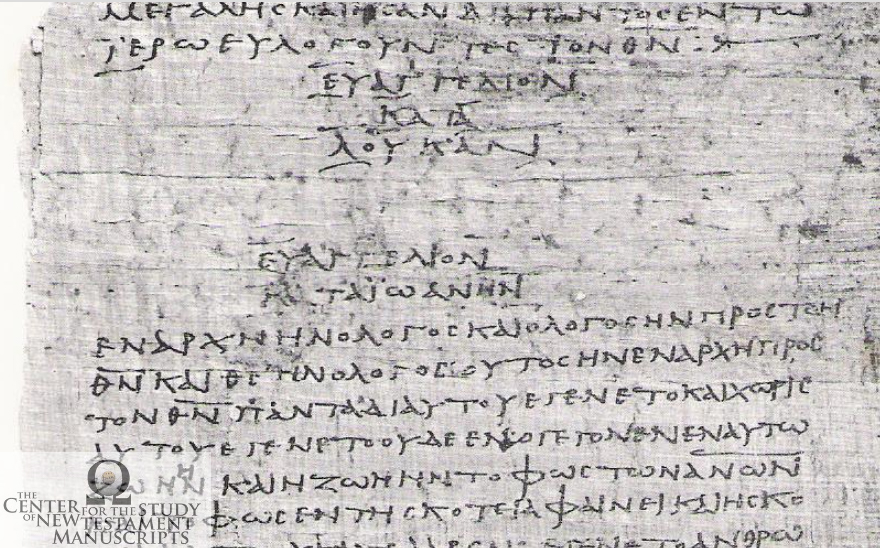 ΜΕΓΑΛΗϹΚΑΙΗϹΑΝΔΙΑΠΑΝΤΟϹΕΝΤΩ
ΪΕΡΩΕΥΛΟΓΟΥΝΤΕϹΤΟΝΘ̅Ν̅
ΕΥΑΓΓΕΛΙΟΝ
ΚΑΤΑ
ΛΟΥΚΑΝ
ΕΥΑΓΓΕΛΙΟΝ
ΚΑΤΑΪΩΑΝΗΝ
ΕΝΑΡΧΗΗΝΟΛΟΓΟϹΚΑΙΟΛΟΓΟϹΗΝΠΡΟϹΤΟΝ
Θ̅Ν̅ΚΑΙΘ̅Ϲ̅ΗΝΟΛΟΓΟϹΟΥΤΟϹΗΝΕΝΑΡΧΗΠΡΟϹ
ΤΟΝΘ̅Ν̅ΠΑΝΤΑΔΙΑΥΤΟΥΕΓΕΝΕΤΟΚΑΙΧΩΡΙϹ
ΑΥΤΟΥΕΓΕΝΕΤΟΟΥΔΕΕΝΟΓΕΓΟΝΕΝΕΝΑΥΤΩ
ΖΩΗΗΝΚΑΙΗΖΩΗΗΝΤΟΦΩϹΤΩΝΑ̅Ν̅Ω̅Ν̅
ΦΩϹΕΝΤΗϹΚΟΤΕΙΑΦΑΙΝΕΙΚΑΙΗϹΚΟ
ΕΓΕΝΕΤΟΑΝΘΡΩ
THE
CENTER FOR THE STUDY
OF NEW TESTAMENT
MANUSCRIPTS